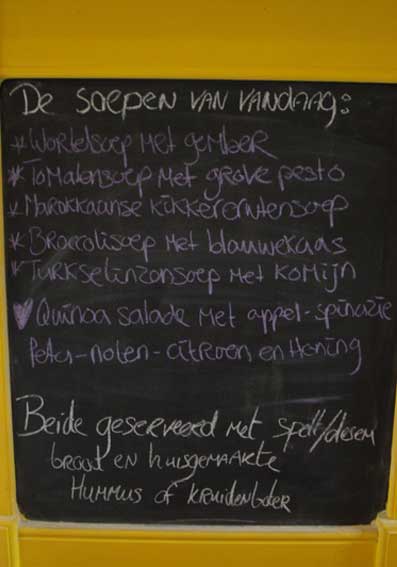 De soepen van vandaag:
* Wortelsoep met gember
* Tomatensoep met grove pesto
* Marokkaanse kikkererwtensoep
* Broccolisoep met blauwekaas
* Turkselinzensoep met komijn
♥ Quinoa salade met appel-spinazie
Feta-noten-citroen en Honing
Beide geserveerd met spelt/desem
brood en huisgemaakte
Hummus of kruidenboter